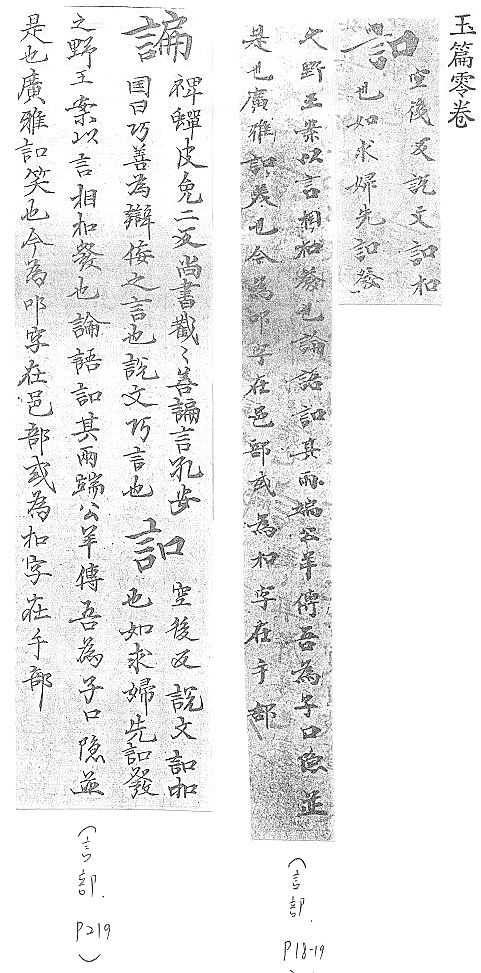 玉篇零卷
訒 空後反說文訒扣
也如求婦先訒發
之野王案以言相扣發也論語訒其兩端公羊傳吾為子口隱並
是也廣雅訒笑也今為叩字在邑部或為扣字在手部
(言部. P18-19
諞 裨蟬皮免二反尚書截〻善諞言孔安
国曰巧善為辯侫之言也說文巧言也 訒 空後反說文訒扣
也如求婦先訒發
之野王案以言相扣發也論語訒其兩端公羊傳吾為子口隱並
是也廣雅訒笑也今為叩字在邑部或為扣字在手部
(言部. P219)